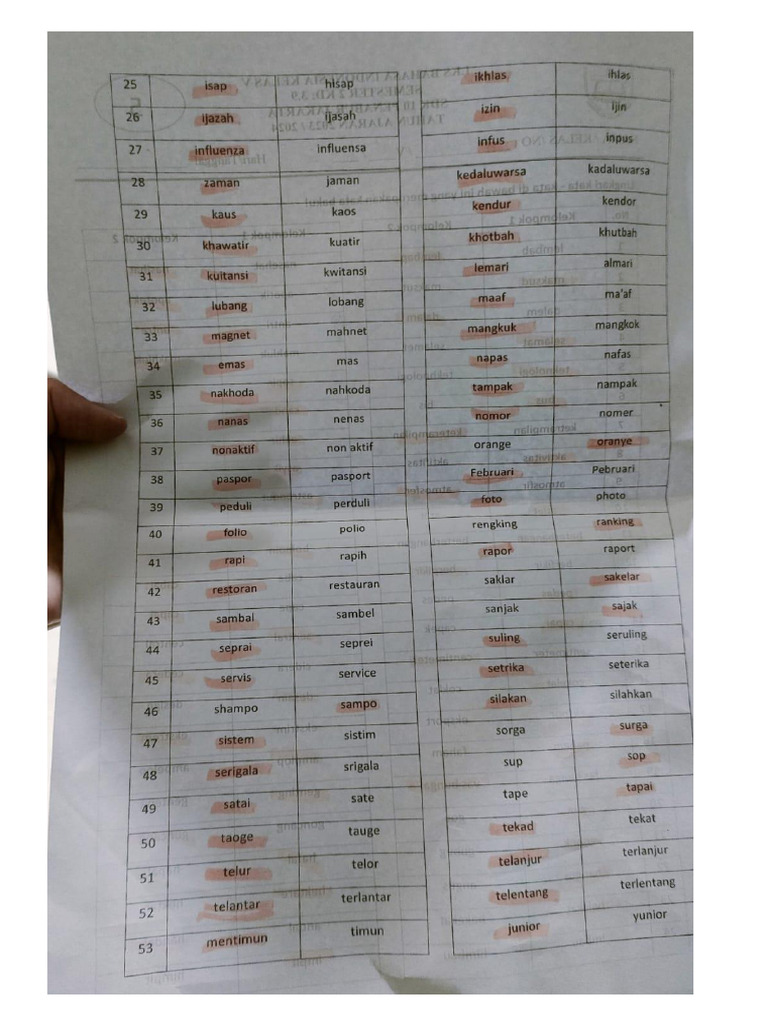 25 isap hisap ikhlas ihlas
26 ijazah ijasah izin ijin
27 influenza influensa infus inpus
28 zaman jaman kedaluwarsa kadaluwarsa
29 kaus kaos kendur kendor
30 khawatir kuatir khotbah khutbah
31 kuitansi kwitansi lemari almari
32 lubang lobang maaf ma'af
33 magnet mahnet mangkuk mangkok
34 emas mas napas nafas
35 nakhoda nahkoda tampak nampak
36 nanas nenas nomor nomer
37 nonaktif non aktif orange oranye
38 paspor pasport Februari Pebruari
39 peduli perduli foto photo
40 folio polio rengking ranking
41 rapi rapih rapor raport
42 restoran restauran saklar sakelar
43 sambal sambel sanjak sajak
44 seprai seprei suling seruling
45 servis service setrika seterika
46 shampo sampo silakan silahkan
47 sistem sistim sorga surga
48 serigala srigala sup sop
49 satai sate tape tapai
50 taoge tauge tekad tekat
51 telur telor telanjur terlanjur
52 telantar terlantar telentang terlentang
53 mentimun timun junior yunior